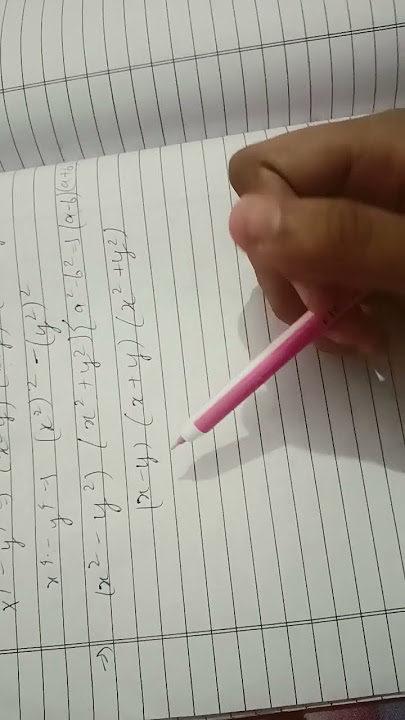 x⁴ - y⁴ → (x²)² - (y²)²
→) (x² - y²) (x² + y²) { a² - b² = (a-b)(a+b
(x-y) (x+y) (x²+y²)